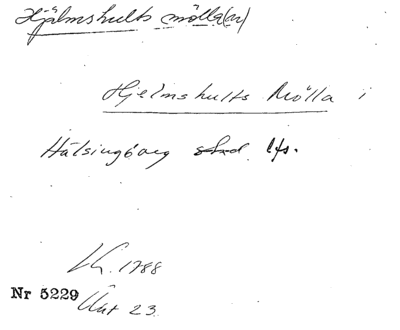 Hjälmshults mölla(n)
Hjelmshults Mölla i
Hälsingborg stad lfs.
Kh. 1788
Nr 5229 Akt 23